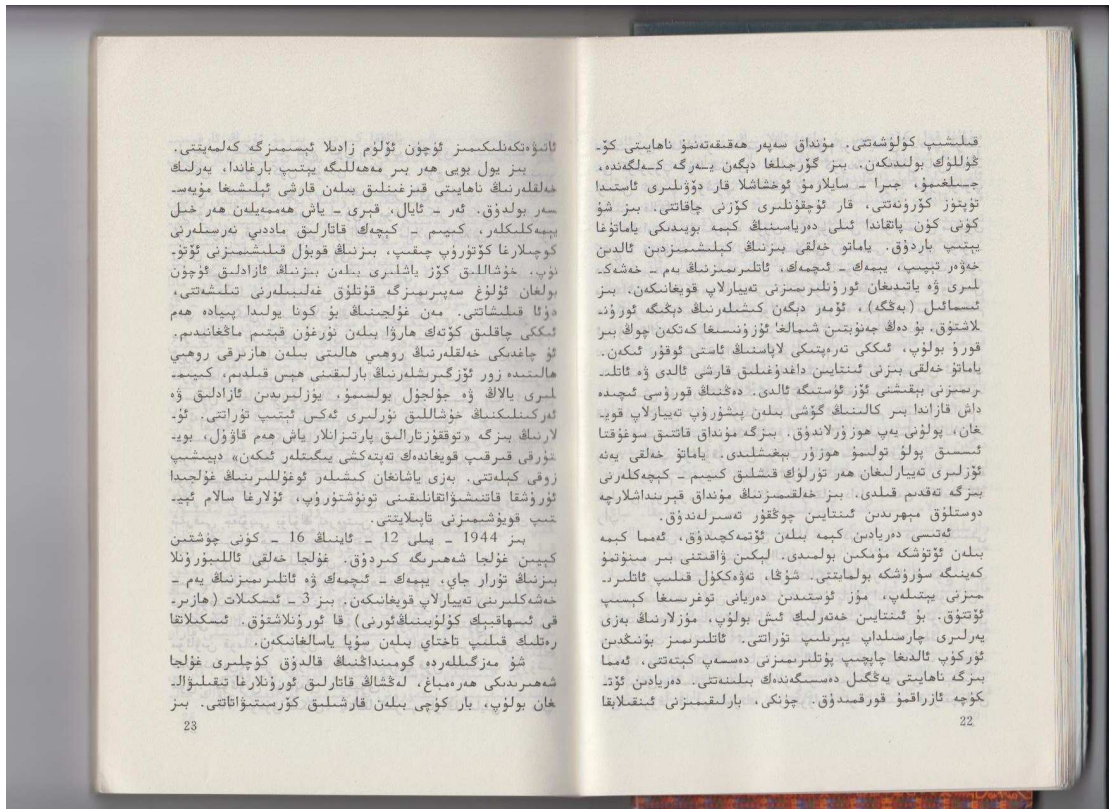 قىلىشىپ كۈلۈشەتتى. مۇنداق سەپەر ھەقىقەتەنمۇ ناھايىتى كۆ-
ڭۈللۈك بولىدىكەن. بىز گۆرجىلغا دېگەن يەرگە كەلگەندە،
جىلغىمۇ، جىرا ـ سايلارمۇ ئوخشاشلا قار دۆۋىلىرى ئاستىدا
تۈپتۈز كۆرۈنەتتى، قار ئۇچقۇنلىرى كۆزنى چاقاتتى. بىز شۇ
كۈنى كۈن پاتقاندا ئىلى دەرياسىنىڭ كېمە بويىدىكى ياماتۇغا
يېتىپ باردۇق. ياماتو خەلقى بىزنىڭ كېلىشىمىزدىن ئالدىن
خەۋەر تېپىپ، يېمەك ـ ئىچمەك، ئاتلىرىمىزنىڭ بەم ـ خەشەك-
لىرى ۋە ياتىدىغان ئورۇنلىرىمىزنى تەييارلاپ قويغانىكەن. بىز
ئىسمائىل (بەگگە)، ئۆمەر دېگەن كىشىلەرنىڭ دېڭىگە ئورۇن-
لاشتۇق. بۇ دەڭ جەنۇبتىن شىمالغا ئۇزۇنىسىغا كەتكەن چوڭ بىر
قورۇ بولۇپ، ئىككى تەرەپتىكى لاپاسنىڭ ئاستى ئوقۇر ئىكەن.
ياماتۇ خەلقى بىزنى ئىنتايىن داغدۇغىلىق قارشى ئالدى ۋە ئاتلى-
رىمىزنى بېقىشنى ئۆز ئۈستىگە ئالدى. دەڭنىڭ قورۇسى ئىچىدە
داش قازاندا بىر كالىنىڭ گۆشى بىلەن پىشۇرۇپ تەييارلاپ قوي-
غان، پولۇنى يەپ ھوزۇرلاندۇق. بىزگە مۇنداق قاتتىق سوغۇقتا
ئىسسىق پولۇ تولىمۇ ھوزۇر بېغىشلىدى. ياماتۇ خەلقى يەنە
ئۆزلىرى تەييارلىغان ھەر تۈرلۈك قىشلىق كىيىم ـ كېچەكلەرنى
بىزگە تەقدىم قىلدى. بىز خەلقىمىزنىڭ مۇنداق قېرىنداشلارچە
دوستلۇق مېھرىدىن ئىنتايىن چوڭقۇر تەسىرلەندۇق.
ئەتىسى دەريادىن كېمە بىلەن ئۆتمەكچىدۇق، ئەمما كېمە
بىلەن ئۆتۈشكە مۇمكىن بولمىدى. لېكىن ۋاقىتنى بىر مىنۇتمۇ
كەينىگە سۈرۈشكە بولمايتتى. شۇڭا، تەۋەككۈل قىلىپ ئاتلىرى-
مىزنى يېتىلەپ، مۇز ئۈستىدىن دەريانى توغرىسىغا كېسىپ
ئۆتتۇق. بۇ ئىنتايىن خەتەرلىك ئىش بولۇپ، مۇزلارنىڭ بەزى
يەرلىرى چارسىلداپ يېرىلىپ تۇراتتى. ئاتلىرىمىز بۇنىڭدىن
ئۈركۈپ ئالدىغا چاپچىپ پۇتلىرىمىزنى دەسسەپ كېتەتتى، ئەمما
بىزگە ناھايىتى يەڭگىل دەسسىگەندەك بىلىنەتتى. دەريادىن ئۆت-
كۈچە ئازراقمۇ قورقمىدۇق. چۈنكى، بارلىقىمىزنى ئىنقىلابقا
22
ئاتىۋەتكەنلىكىمىز ئۈچۈن ئۆلۈم زادىلا ئېسىمىزگە كەلمەيتتى.
بىز يول بويى ھەر بىر مەھەللىگە يېتىپ بارغاندا، يەرلىك
خەلقلەرنىڭ ناھايىتى قىزغىنلىق بىلەن قارشى ئېلىشىغا مۇيەس-
سەر بولدۇق. ئەر ـ ئايال، قېرى ـ ياش ھەممەيلەن ھەر خىل
يېمەكلىكلەر، كىيىم ـ كېچەك قاتارلىق ماددىي نەرسىلەرنى
كوچىلارغا كۆتۈرۈپ چىقىپ، بىزنىڭ قوبۇل قىلىشىمىزنى ئۆتۈ-
نۈپ، خۇشاللىق كۆز ياشلىرى بىلەن بىزنىڭ ئازادلىق ئۈچۈن
بولغان ئۇلۇغ سەپىرىمىزگە قۇتلۇق غەلىبىلەرنى تىلىشەتتى،
دۇئا قىلىشاتتى. مەن غۇلجىنىڭ بۇ كونا يولىدا پىيادە ھەم
ئىككى چاقلىق كۆتەك ھارۋا بىلەن نۇرغۇن قېتىم ماڭغانىدىم.
ئۇ چاغدىكى خەلقلەرنىڭ روھىي ھالىتى بىلەن ھازىرقى روھىي
ھالىتىدە زور ئۆزگىرىشلەرنىڭ بارلىقىنى ھېس قىلدىم، كىيىم-
لىرى يالاڭ ۋە جۇلجۇل بولسىمۇ، يۈزلىرىدىن ئازادلىق ۋە
ئەركىنلىكنىڭ خۇشاللىق نۇرلىرى ئەكس ئېتىپ تۇراتتى. ئۇ-
لارنىڭ بىزگە «توققۇزتارالىق پارتىزانلار ياش ھەم قاۋۇل، بوي-
تۇرقى قىرقىپ قويغاندەك تەپتەكشى يىگىتلەر ئىكەن» دېيىشىپ
زوقى كېلەتتى. بەزى ياشانغان كىشىلەر ئوغۇللىرىنىڭ غۇلجىدا
ئۇرۇشقا قاتنىشىۋاتقانلىقىنى تونۇشتۇرۇپ، ئۇلارغا سالام ئېي-
تىپ قويۇشىمىزنى تاپىلايتتى.
بىز 1944 ـ يىلى 12 ـ ئاينىڭ 16 ـ كۈنى چۈشتىن
كېيىن غۇلجا شەھىرىگە كىردۇق. غۇلجا خەلقى ئاللىبۇرۇنلا
بىزنىڭ تۇرار جاي، يېمەك ـ ئىچمەك ۋە ئاتلىرىمىزنىڭ يەم ـ
خەشەكلىرىنى تەييارلاپ قويغانىكەن. بىز 3 ـ ئىسكىلات (ھازىر-
قى ئىسھاقبېك كۇلۇبىنىڭئورنى) قا ئورۇنلاشتۇق. ئىسكىلاتقا
رەتلىك قىلىپ تاختاي بىلەن سۇپا ياسالغانىكەن.
شۇ مەزگىللەردە گومىنداڭنىڭ قالدۇق كۈچلىرى غۇلجا
شەھىرىدىكى ھەرەمباغ، لەڭشاڭ قاتارلىق ئورۇنلارغا تىقىلىۋال-
غان بولۇپ، بار كۈچى بىلەن قارشىلىق كۆرسىتىۋاتاتتى. بىز
23